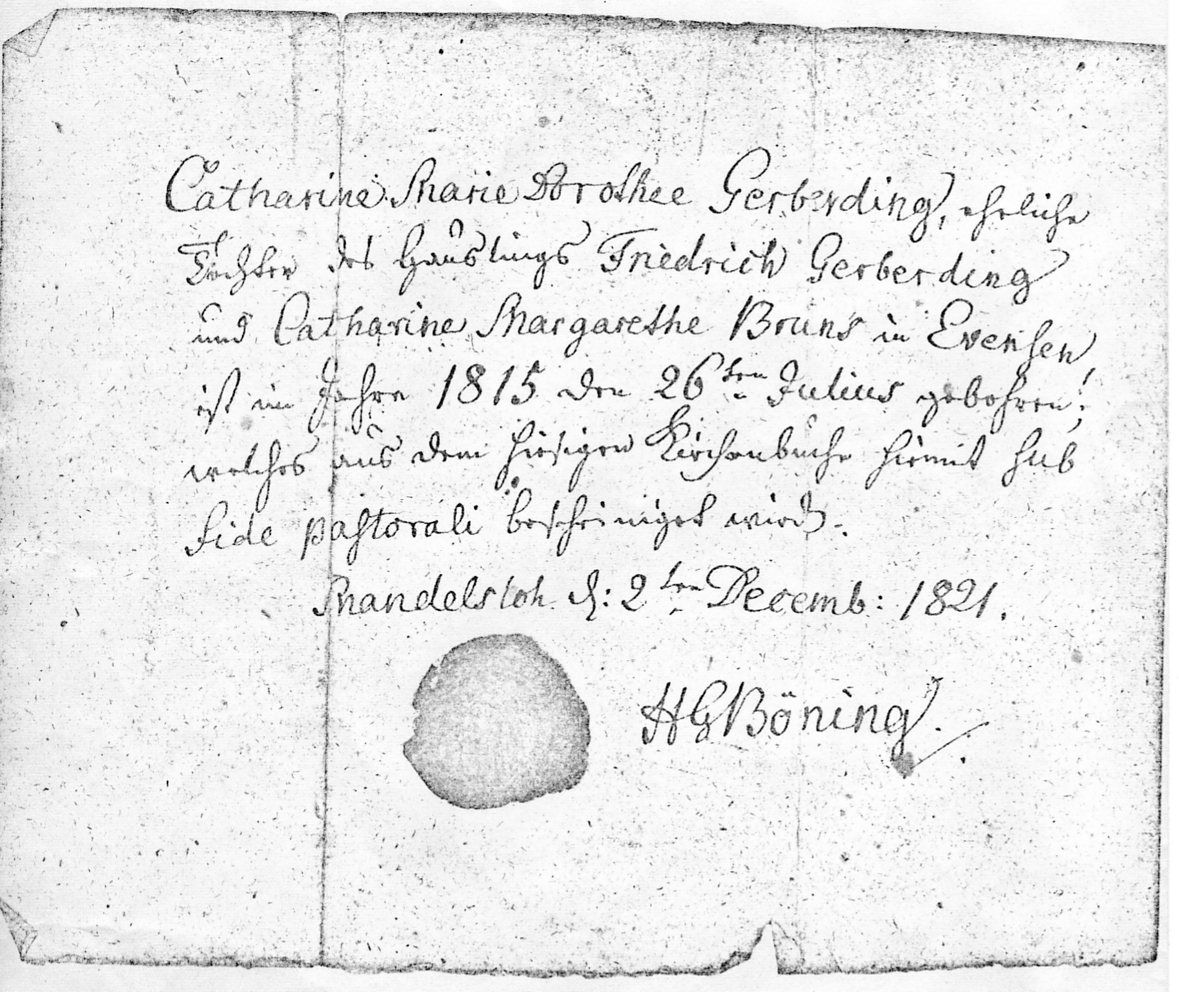 Catharine Marie Dorothee Gerberding, eheliche
Tochter des Häuslings Friedrich Gerberding
und Catharine Margarethe Bruns in Evensen,
ist im Jahre 1815 den 26ten Julius gebohren;
welches aus dem hiesigen Kirchenbuche hiemit sub
fide pastorali bescheiniget wird.
Mandelsloh d: 2ten Decemb: 1821.
HGBöning.